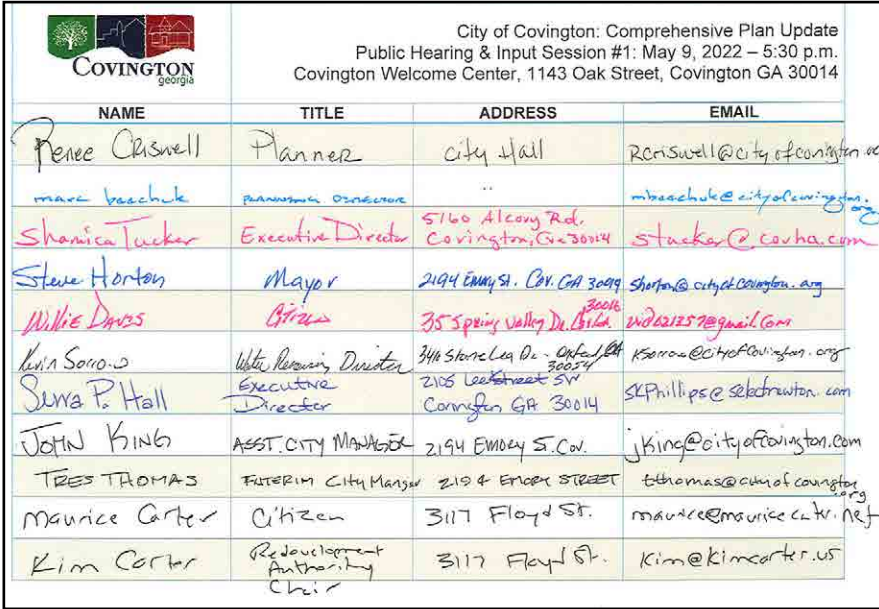 COVINGTON
georgia
City of Covington: Comprehensive Plan Update
Public Hearing & Input Session #1: May 9, 2022 – 5:30 p.m.
Covington Welcome Center, 1143 Oak Street, Covington GA 30014
NAME TITLE ADDRESS EMAIL
Renee Criswell Planner City Hall Rcriswell@cityofcovington.
marc beechuk PLANNING DIRECTOR " mbeechuk@cityofcovington.
org
Shamica Tucker Executive Director 5160 Alcovy Rd.
Covington, Ga 30014 stucker@covha.com
Steve Horton Mayor 2194 Emory St. Cov. GA 30014 shorton@cityofcovington.org
Willie Davis Citizen 35 Spring Valley Dr. 30016
Kevin Sorrow Water Director Stone Lea Dr. - Oxford, GA
30054 Ksorrow@cityofcovington.org
Serra P. Hall Executive
Director 2105 Lee Street SW
Covington GA 30014 SKPhillips@selectnewton.com
JOHN KING ASST. CITY MANAGER 2194 EMORY ST. Cov. jking@cityofcovington.com
TRES THOMAS INTERIM City Manger 2194 EMORY STREET tthomas@cityofcovington
.org
Maurice Carter Citizen 3117 Floyd St. maurice@mauricecarter.net
Kim Carter Redevelopment
Authority
Chair 3117 Floyd St. Kim@kimcarter.us